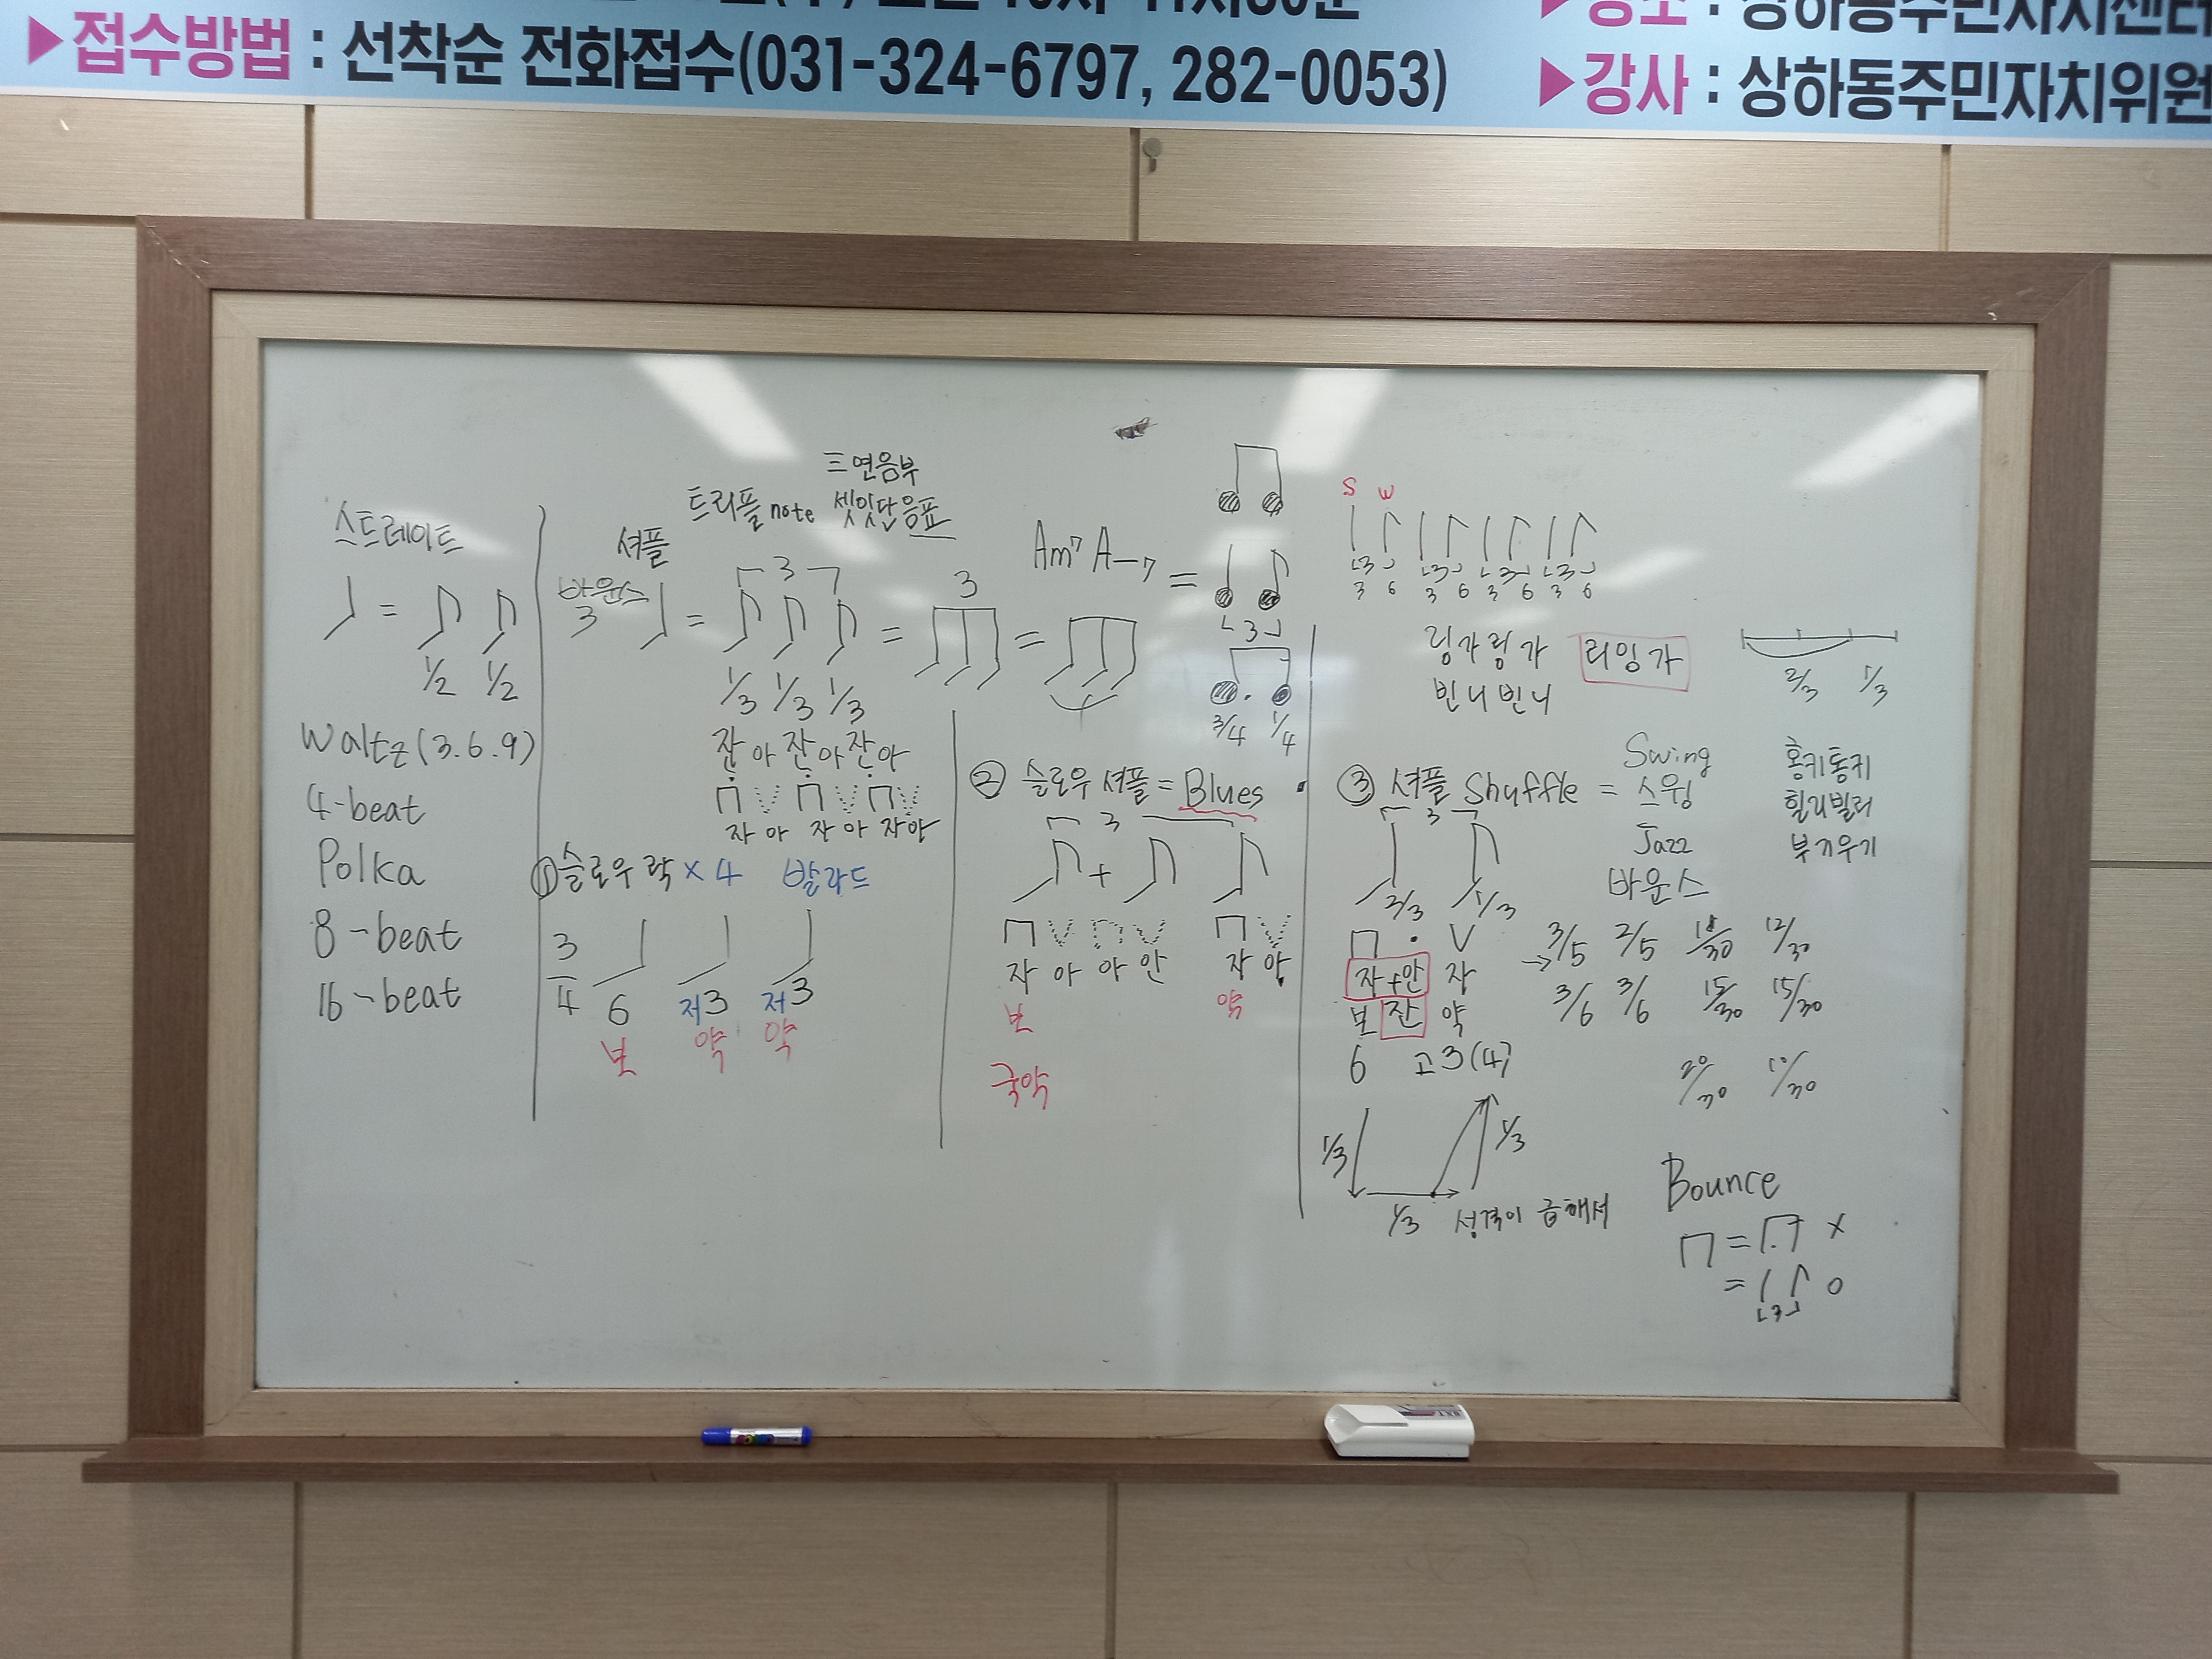 ▶접수방법 : 선착순 전화접수(031-324-6797, 282-0053)
▶강사 : 상하동주민자치위원
스트레이트
=
1/2 1/2
Waltz(3.6.9)
4-beat
Polka
8-beat
16-beat
三연음부
트리플 note 셋잇단음표
셔플
바운스
3
= 3 = 3 =
1/3 1/3 1/3
잔아잔아잔아
자아 자아 자아
① 슬로우 락 × 4 발라드
3/4
6 저3 저3
보 약 약
Am7 A-7 =
3
3/4 1/4
② 슬로우 셔플 = Blues
3
+
자 아 아 안 자 안
보 약
국악
S W
3 3 3 3
3 6 3 6 3 6 3 6
링가링가 리잉가
빈니빈니
2/3 1/3
③ 셔플 Shuffle = Swing
스윙
Jazz
바운스
홍키통키
힐리빌리
부기우기
3
2/3 1/3
자+안 자
보 잔 약
6 고3(4)
→ 3/5 2/5 18/30 12/30
3/6 3/6 15/30 15/30
20/30 10/30
1/3 1/3
1/3 성격이 급해서
Bounce
= ×
= 3 ○